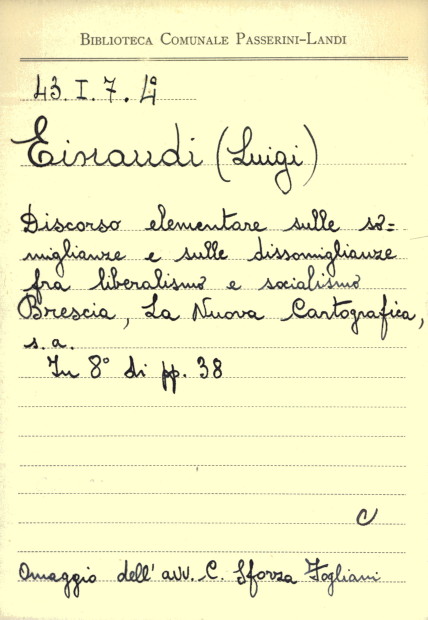 BIBLIOTECA COMUNALE PASSERINI-LANDI
43. I. 7. 4
Einaudi (Luigi)
Discorso elementare sulle so=
miglianze e sulle dissomiglianze
fra liberalismo e socialismo
Brescia, La Nuova Cartografica,
s. a.
In 8° di pp. 38
C
Omaggio dell'avv. C. Sforza Fogliani